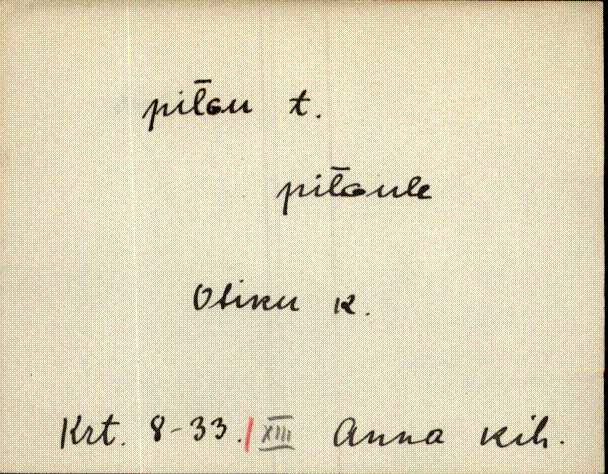 pil̄au t.
pil̄aule
Otiku k.
Krt. 8-33. | XIII Anna kih.